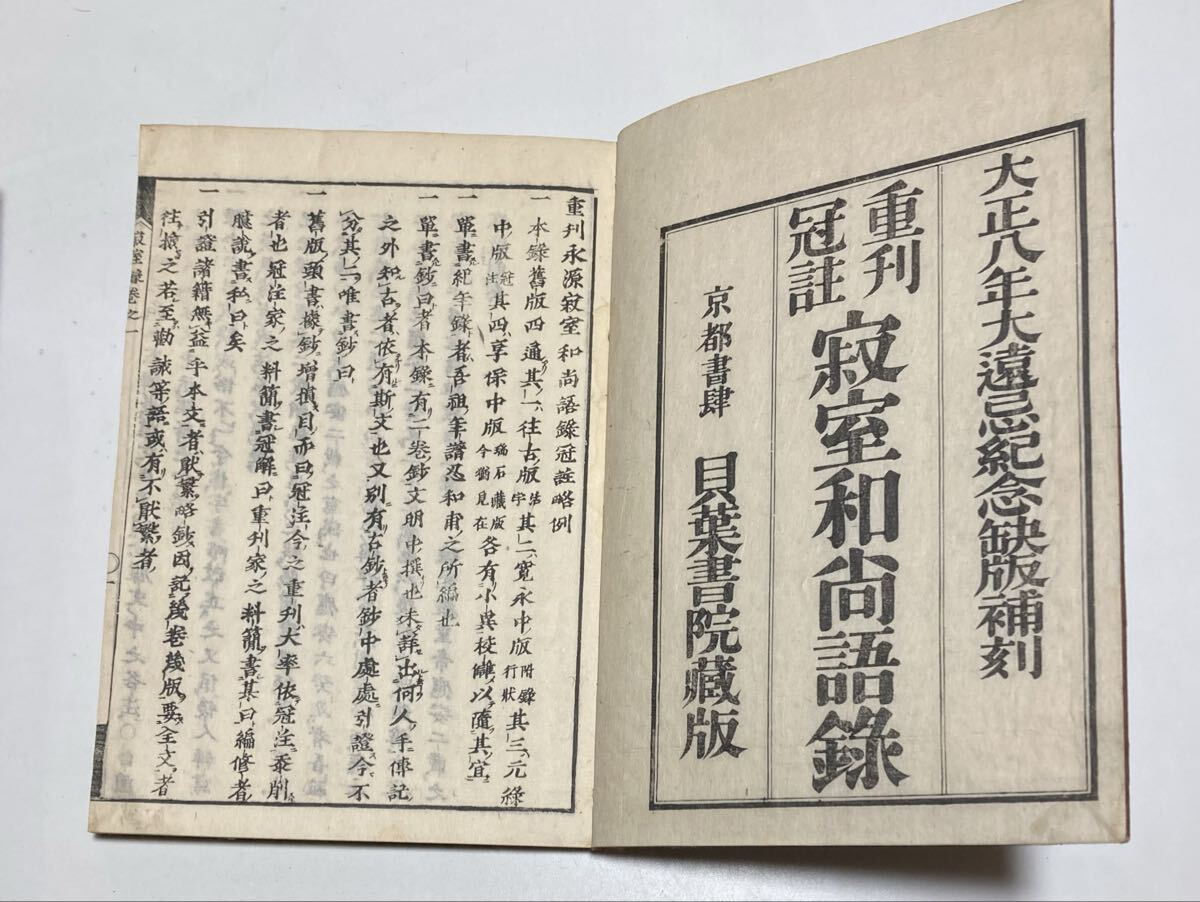 大正八年大遠忌紀念缺版補刻
重刊
冠註
寂室和尚語錄
京都書肆 貝葉書院藏版
重刊永源寂室和尚語錄冠註略例
一 本錄舊版四通其一往古版活字其二寬永中版附錄行狀其三元祿
中版冠注其四享保中版瑞石藏版今猶見在各有小異校讎以隨其宜
一 單書紀年錄者吾祖年譜忍和甫之所編也
一 單書鈔曰者本錄有二卷鈔文明中撰也未詳出何人手傳記
之外知古者依有斯文也又別有古鈔者鈔中處處引證今不
分其二唯書鈔曰
一 舊版頭書據鈔增損目而曰冠注今之重刊大率依冠注乘削
者也冠注家之料簡書冠解曰重刊家之料簡書某曰編修者
臆說書私曰矣
一 引證諸籍無益乎本文者厭繁略鈔因記幾卷幾版要全文者
往撿之若至勸誡等語或有不厭繁者
寂室錄卷之一